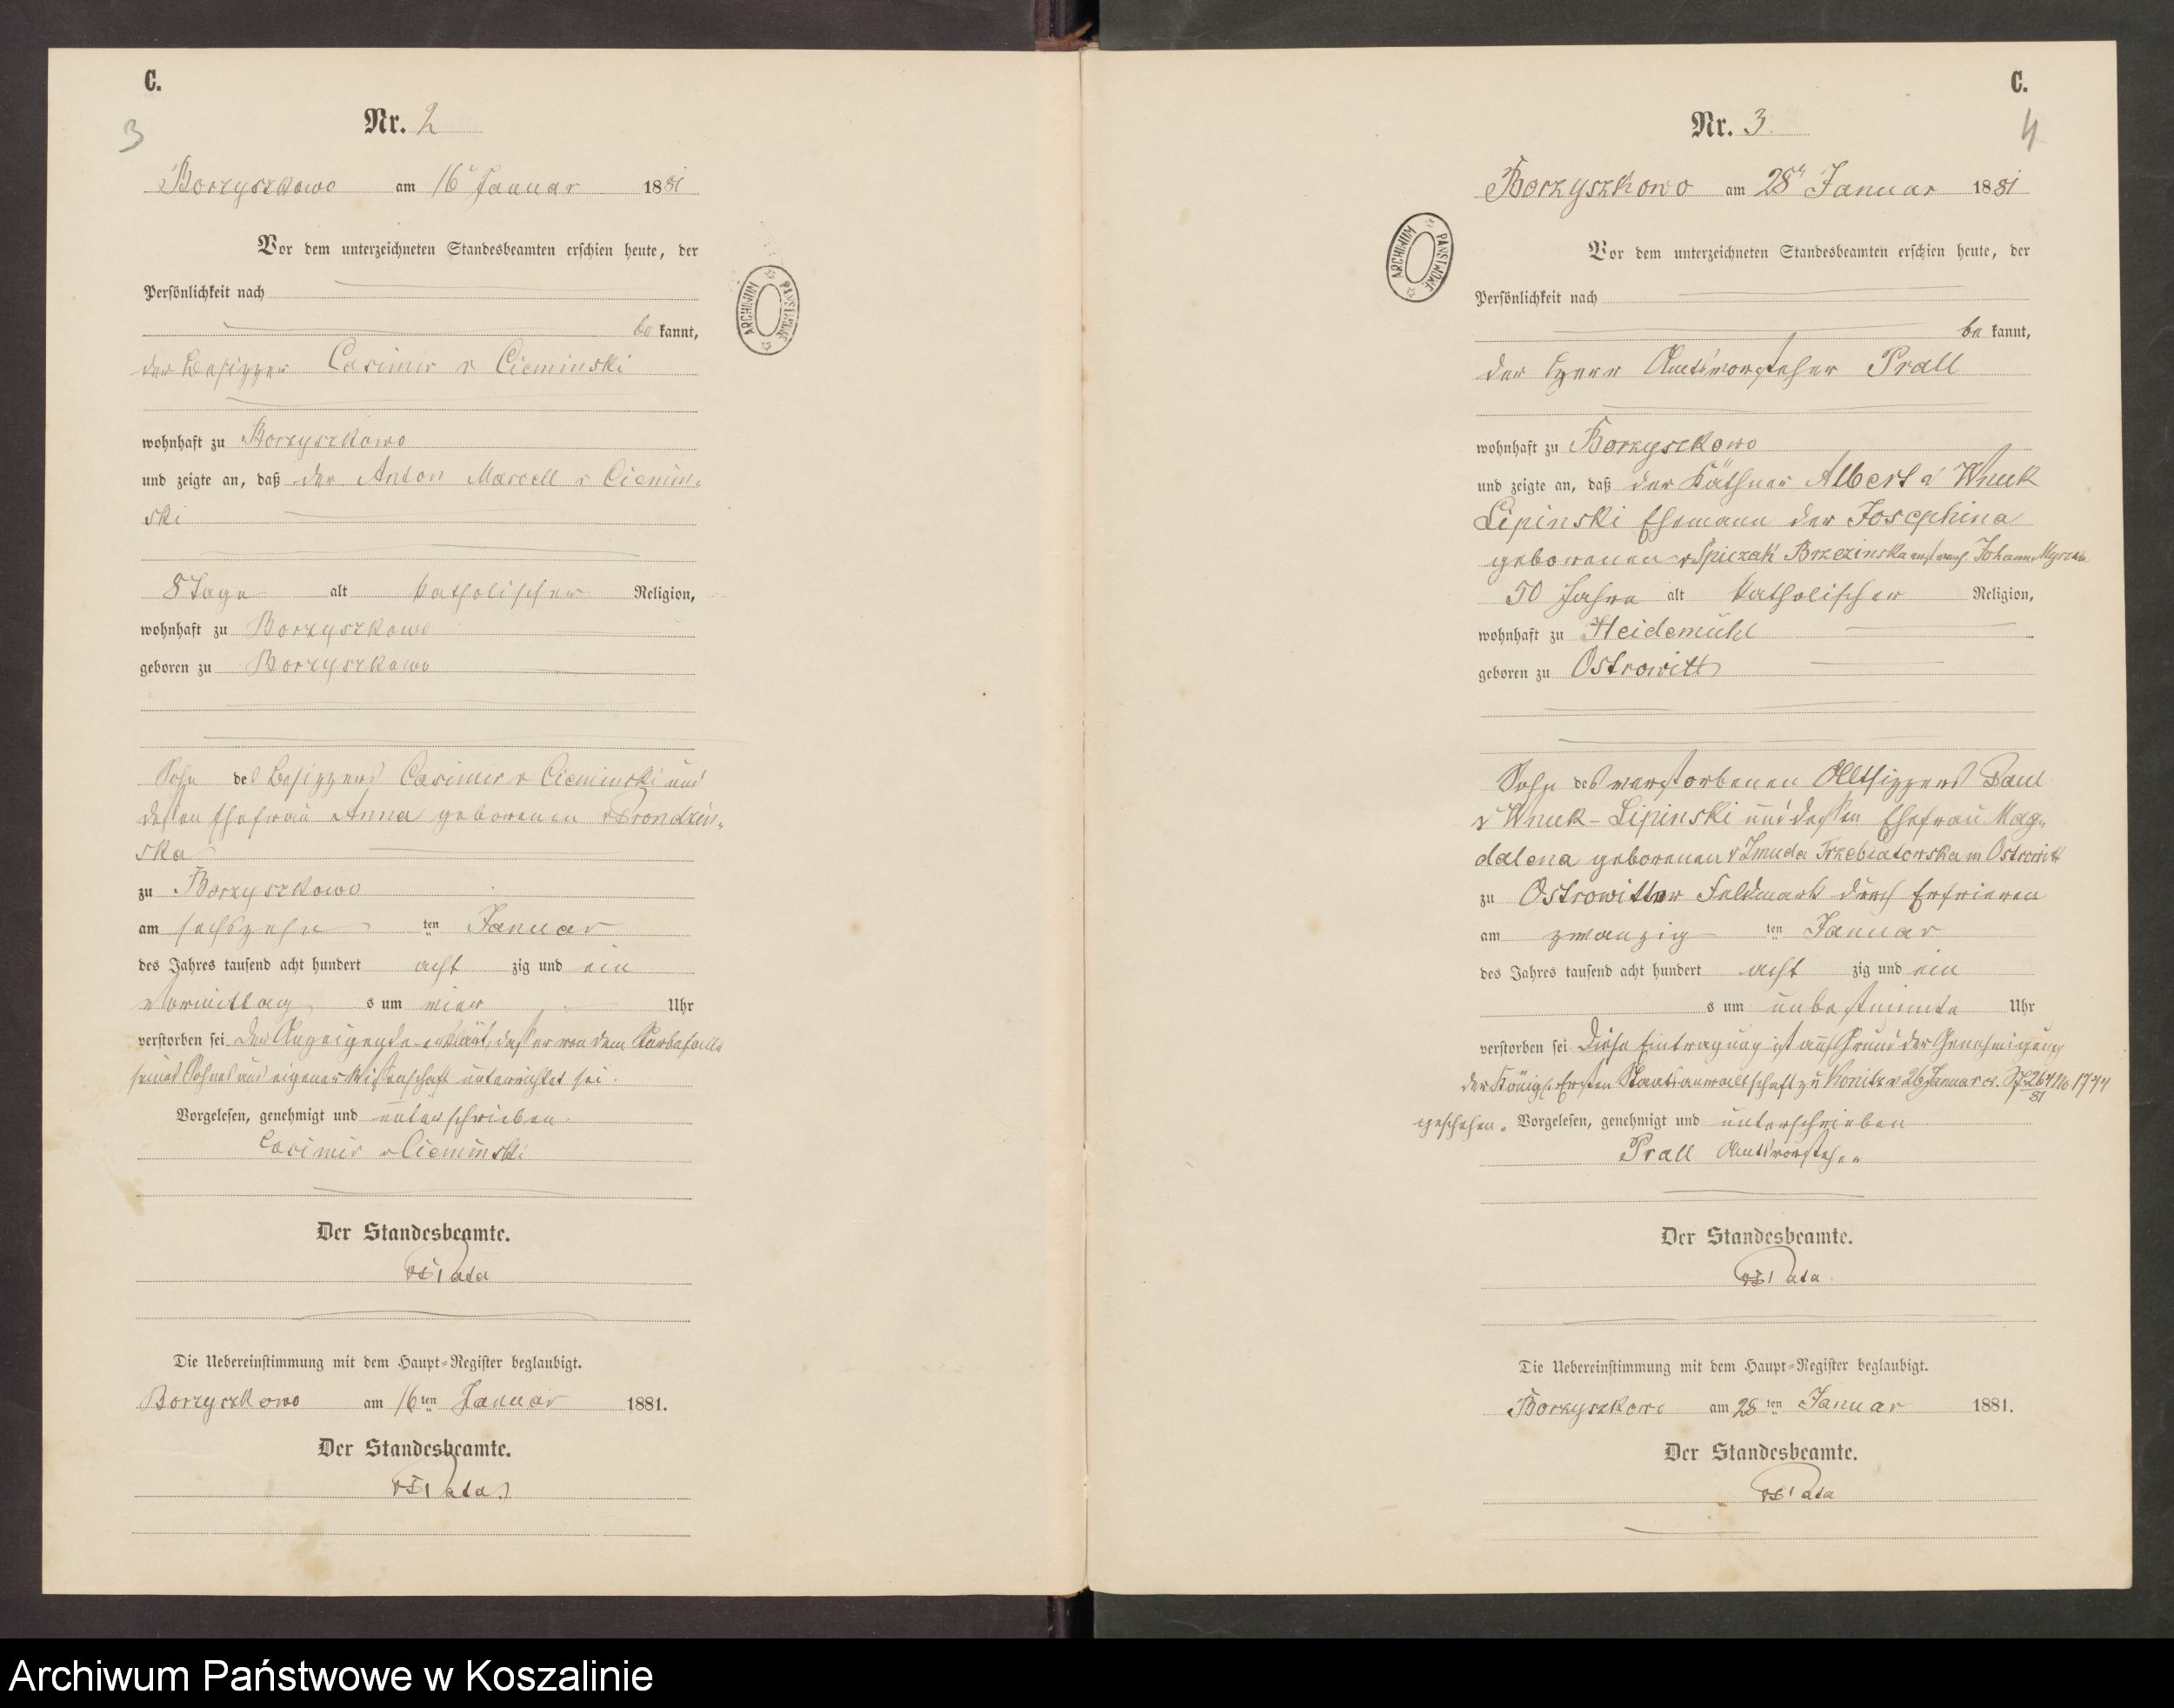 C.
3
Nr. 2
Borzyszkowo am 16 Januar 1881
Vor dem unterzeichneten Standesbeamten erschien heute, der
Persönlichkeit nach
be kannt,
der Besitzer Casimir v Cieminski
wohnhaft zu Borzyszkowo
und zeigte an, daß der Anton Marcell v Ciemin-
ski
8 Tage alt katholischer Religion,
wohnhaft zu Borzyszkowo
geboren zu Borzyszkowo
Sohn des Besitzers Casimir v Cieminski und
dessen Ehefrau Anna geborenen v Prondzin-
ska
zu Borzyszkowo
am sechszehn ten Januar
des Jahres tausend acht hundert acht zig und ein
Vormittag s um vier Uhr
verstorben sei Der Anzeigende erklärt, daß er von dem Sterbefalle
seines Sohnes aus eigener Wissenschaft unterrichtet sei.
Vorgelesen, genehmigt und unterschrieben.
Casimir v Cieminski
Der Standesbeamte.
Die Uebereinstimmung mit dem Haupt-Register beglaubigt.
Borzyszkowo am 16ten Januar 1881.
Der Standesbeamte.
ARCHIWUM PAŃSTWOWE
C.
4
Nr. 3.
Borzyszkowo am 28 Januar 1881
Vor dem unterzeichneten Standesbeamten erschien heute, der
Persönlichkeit nach
be kannt,
der Herr Amtsvorsteher Prall
wohnhaft zu Borzyszkowo
und zeigte an, daß der Käthner Albert v Wnuk
Lipinski Ehemann der Josephina
geborenen v Spiczak Brzezinska Johann
50 Jahre alt katholischer Religion,
wohnhaft zu Heidemühl
geboren zu Ostrowitt
Sohn des verstorbenen Altsitzers Paul
v Wnuk-Lipinski und dessen Ehefrau Mag-
dalena geborenen v Zmuda Trzebiatowska in Ostrowitt
zu Ostrowitter Feldmark durch Erfrieren
am zwanzig ten Januar
des Jahres tausend acht hundert acht zig und ein
s um unbestimmte Uhr
verstorben sei Diese Eintragung ist auf Grund der Genehmigung
der Königl. Ersten Staatsanwaltschaft zu Konitz v 26 Januar cr.
geschehen. Vorgelesen, genehmigt und unterschrieben
Prall Amtsvorsteher
Der Standesbeamte.
Die Uebereinstimmung mit dem Haupt-Register beglaubigt.
Borzyszkowo am 28ten Januar 1881.
Der Standesbeamte.
ARCHIWUM PAŃSTWOWE
Archiwum Państwowe w Koszalinie